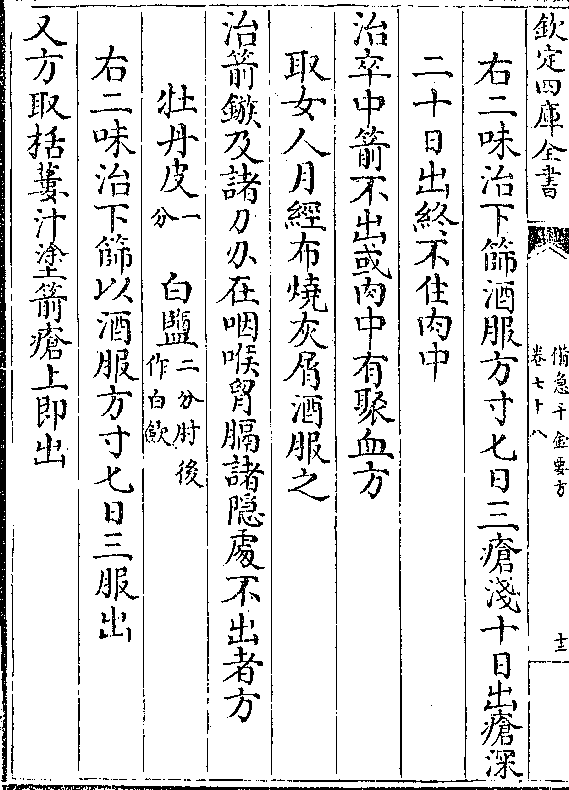 欽定四庫全書
備急千金要方
卷七十八
十三
右二味治下篩酒服方寸七日三瘡淺十日出瘡深
二十日出終不住肉中
治卒中箭不出或肉中有聚血方
取女人月經布燒灰屑酒服之
治箭鏃及諸刀刃在咽喉胷膈諸隠處不出者方
牡丹皮一分 白鹽二分肘後作白歛
右二味治下篩以酒服方寸七日三服出
又方取栝蔞汁塗箭瘡上即出